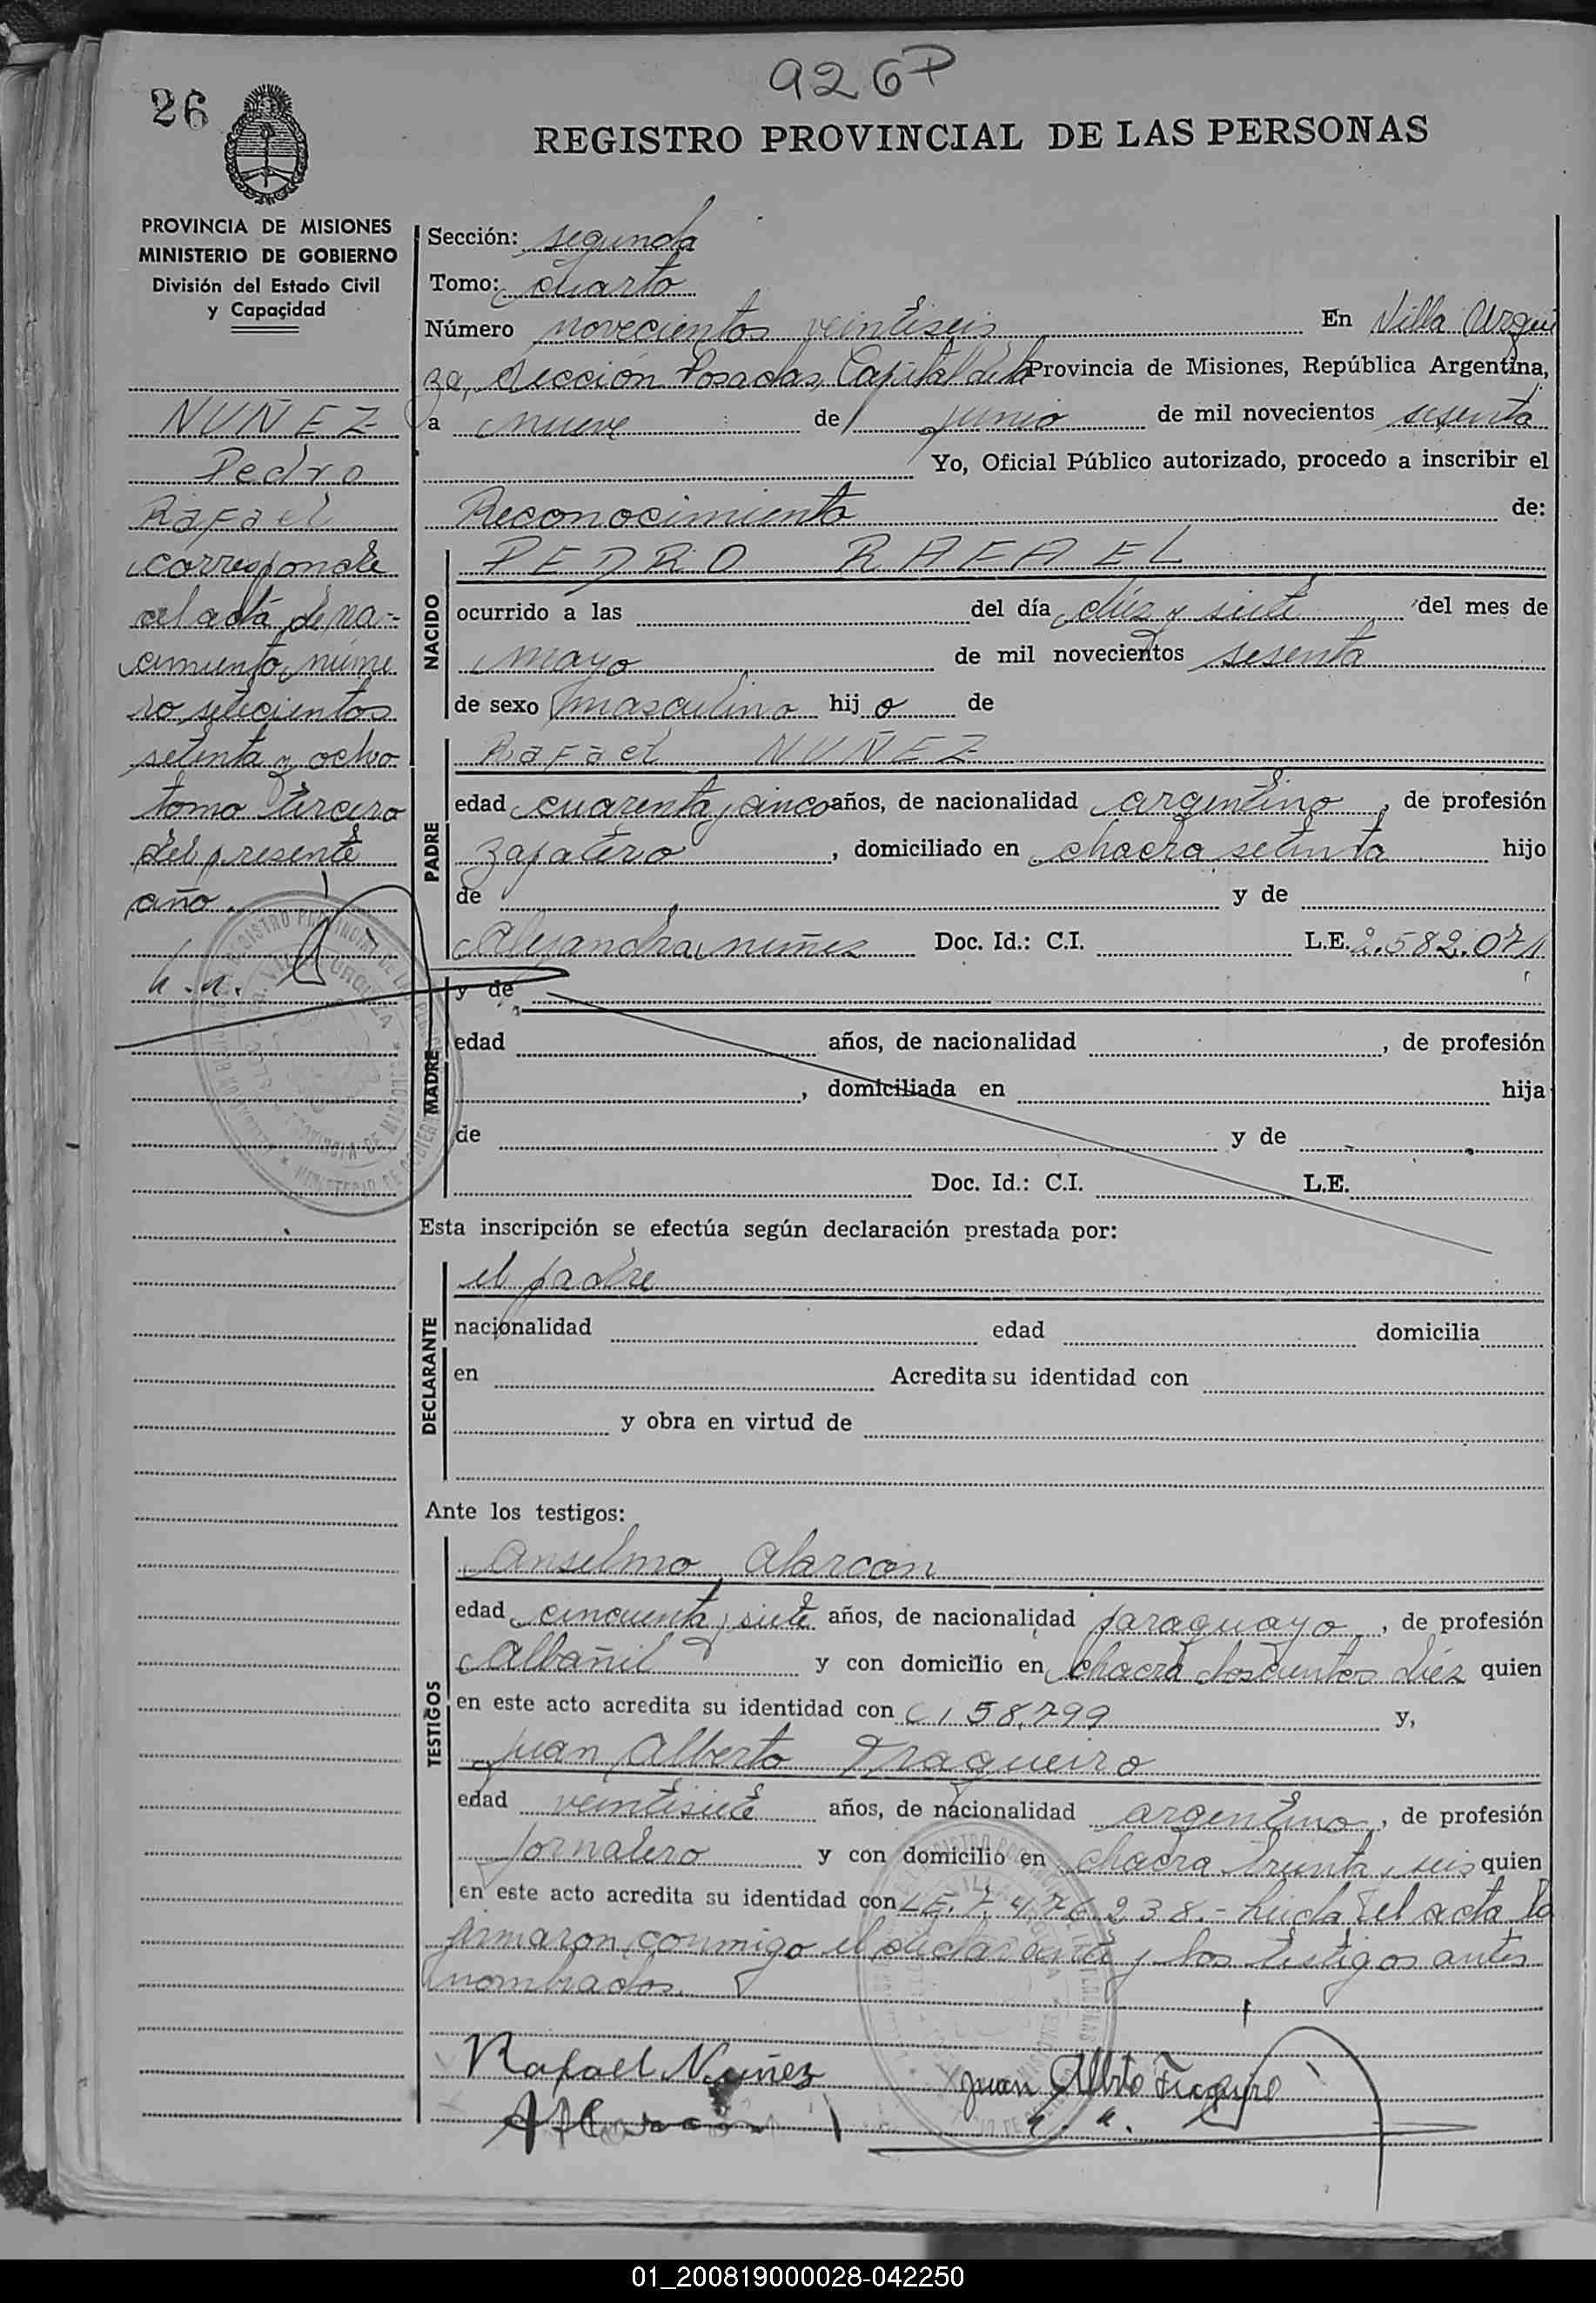 926P
26
REGISTRO PROVINCIAL DE LAS PERSONAS
PROVINCIA DE MISIONES
MINISTERIO DE GOBIERNO
División del Estado Civil
y Capacidad
NUÑEZ
Pedro
Rafael
corresponde
al acta de na-
cimiento núme
ro setecientos
setenta y ocho
tomo tercero
del presente
año.
Sección: segunda
Tomo: cuarto
Número novecientos veintiseis En Villa Urqui
za, Sección Posadas, Capital de la Provincia de Misiones, República Argentina,
a nueve de junio de mil novecientos sesenta
Yo, Oficial Público autorizado, procedo a inscribir el
Reconocimiento de:
NACIDO
PEDRO RAFAEL
ocurrido a las del día diez y siete del mes de
mayo de mil novecientos sesenta
de sexo masculino hijo de
PADRE
Rafael NUÑEZ
edad cuarenta y cinco años, de nacionalidad argentino, de profesión
zapatero, domiciliado en chacra setenta hijo
de y de
Alejandra nuñez Doc. Id.: C.I. L.E. 2.582.071
MADRE
y de
edad años, de nacionalidad , de profesión
, domiciliada en hija
de y de
Doc. Id.: C.I. L.E.
Esta inscripción se efectúa según declaración prestada por:
DECLARANTE
el padre
nacionalidad edad domicilia
en Acredita su identidad con
y obra en virtud de
Ante los testigos:
TESTIGOS
Anselmo Alarcon
edad cincuenta y siete años, de nacionalidad paraguayo, de profesión
Albañil y con domicilio en chacra doscientos diéz quien
en este acto acredita su identidad con CI 58.799 y,
Juan Alberto Fraqueiro
edad veintisiete años, de nacionalidad argentino, de profesión
jornalero y con domicilio en chacra treinta y seis quien
en este acto acredita su identidad con LE. 7.476.238.- Leida el acta la
firmaron conmigo el declarante y los testigos antes
nombrados.
Rafael Nuñez
Juan Alberto
A Alarcón
01_200819000028-042250